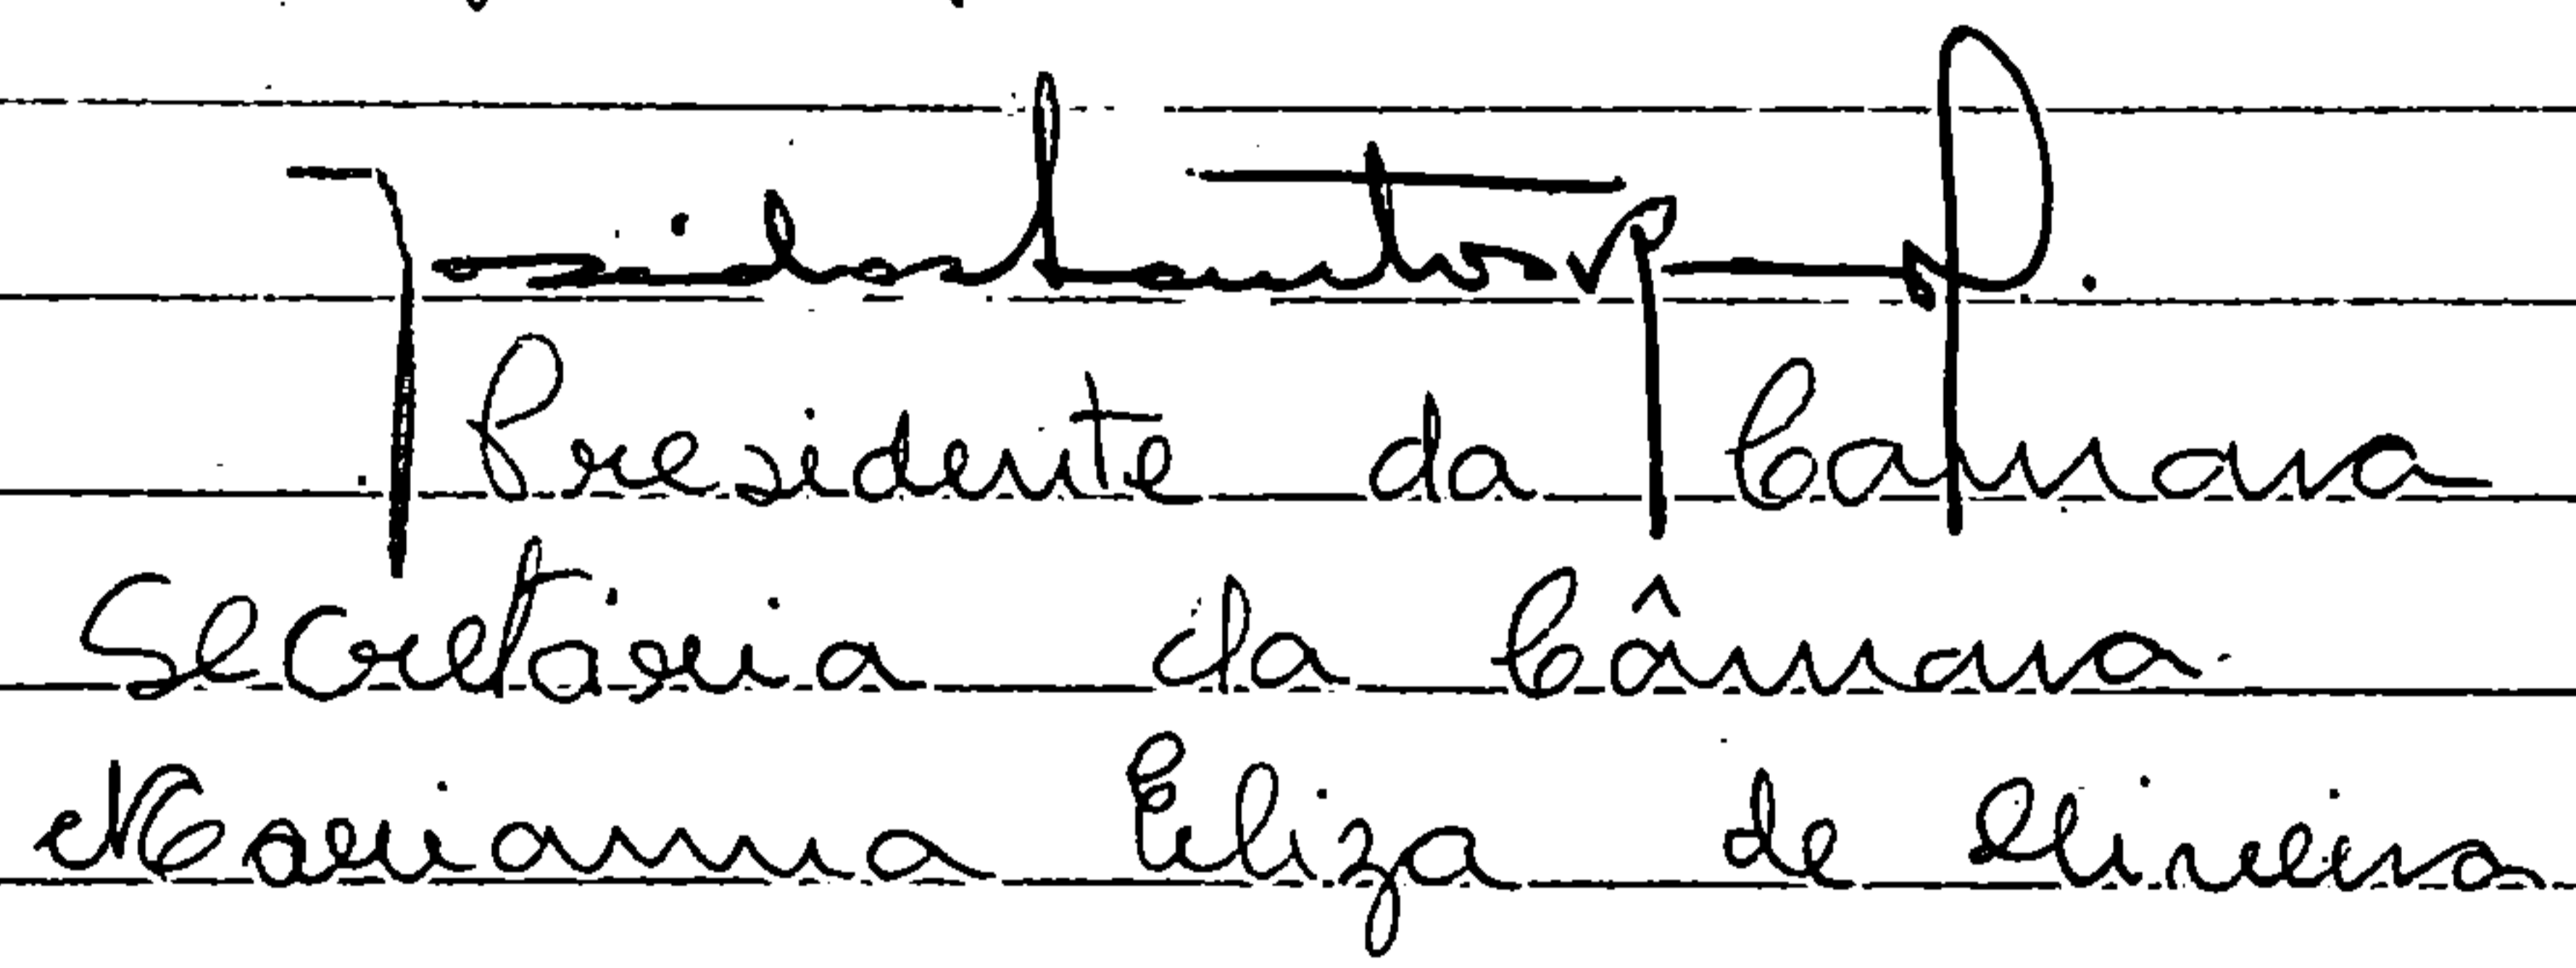 Presidente da Camara
Secretária da Câmara
Marianna Eliza de Oliveira